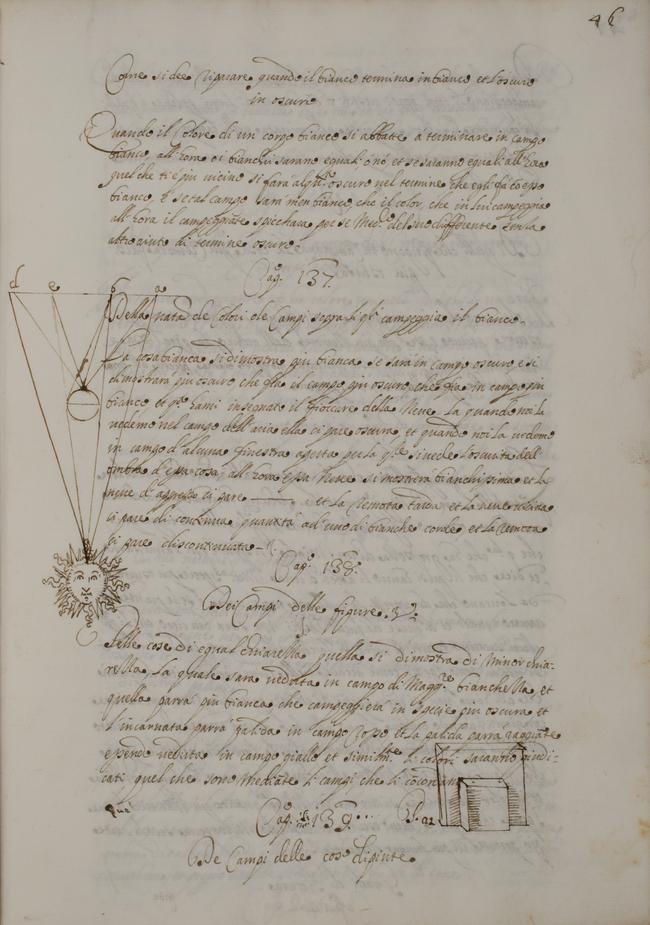 46
Come si dee riparare quando il bianco termina in bianco et l'oscuro
in oscuro
Quando il Colore di un corpo bianco si abbatte a terminare in campo
bianco, all'hora o i bianchi sarano equali ò nò, et se saranno equali all'hora
quel che ti è piu vicino si farà alqto oscuro nel termine che egli fa cō esso
bianco, E se tal campo sarà men bianco che il color che in lui campeggia
all'hora il campeggiāte spicchara per se medo del suo differente senza
altro aiuto di termine oscuro.
Capo 137.
d e b a
Della nata de Colori de Campi sopra li qli campeggia il bianco.
La cosa bianca si dimostra piu bianca se sara in campo oscuro e si
dimostrarà piu oscura che sia il campo piu oscuro che sia in campo piu
bianco et qo hami insegnato il fioccare della Neve. La quando noi la
vedemo nel campo dell'aria ella ci pare oscura et quando noi la vedemo
in campo d'alcuna finestra aperta per la qle si vede l'oscurità dell'
ombra d'essa casa all'hora essa Neve si mostrerà bianchissima et la
neve d'appresso ci pare et la Remota tarda et la neve vicina
ci pare di continua quantità ad uso di bianche corde et la Remota
ci pare discontinuata
Capo 138.
Dei Campi delle figure.
Delle cose di equal chiarezza quella si dimostra di minor chia-
rezza, la quale sara veduta in campo di Maggre bianchezza, et
quella parrà piu bianca che campeggierà in specie piu oscura et
l'incarnata parrà palida in campo rosso et la palida parra rosseggiāte
essendo veduta in campo giallo et similmte li colori sarānno giudi-
cati quel che sono Mediāte li campi che li circondano
Capo 139
De Campi delle cose dipinte.